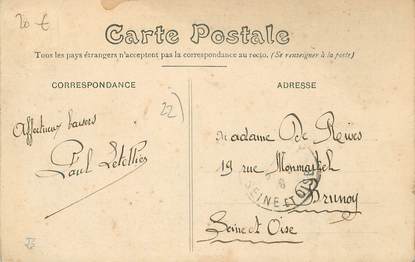 20 €
Carte Postale
Tous les pays étrangers n'acceptent pas la correspondance au recto. (Se renseigner à la poste)
CORRESPONDANCE
ADRESSE
22
Affectueux baisers
Paul Letellier
Madame De Rives
19 rue Monmartel
Brunoy
Seine et Oise
SEINE ET OISE